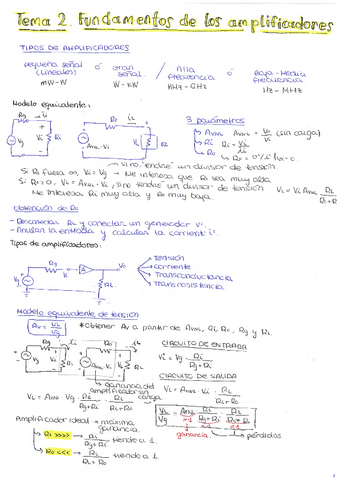 Tema 2. Fundamentos de los amplificadores
TIPOS DE AMPLIFICADORES
pequeña señal (Lineales) mW-W / Gran señal W-kW / Alta frecuencia kHz-GHz ó Baja-Media frecuencia Hz-MHz
Modelo equivalente:
3 parámetros
AVNL AVNL = Vo/Vi (sin carga)
Ri Ri = Vi/Ii
Ro
Si Ri fuera ∞, Vi = Vg → Me interesa que Ri sea muy alta
Si Ro = 0, VL = AVNL · Vi, si no tendré un divisor de tensión
Me interesa Ri muy alta y Ro muy baja.
Obtención de Ro
- Desconectas RL y conectar un generador V'.
- Anulas la entrada y calcular la corriente i'.
Tipos de amplificadores:
Tensión
corriente
Transconductancia
Transresistencia
Modelo equivalente de tensión
AV = VL/Vg * Obtener AV a partir de AVNL, Ri, Ro, Rg y RL.
CIRCUITO DE ENTRADA
Vi = Vg · Ri/(Rg+Ri)
CIRCUITO DE SALIDA
VL = AVNL · Vi · RL/(RL+Ro)
ganancia del amplificador sin carga.
VL = AVNL · Vg · Ri/(Rg+Ri) · RL/(RL+Ro)
VL/Vg = AVNL · Ri/(Rg+Ri) · RL/(RL+Ro)
>1 <1 <1
ganancia pérdidas
Amplificador ideal → máxima ganancia.
Ri >>>> → Ri/(Rg+Ri) tiende a 1.
Ro <<< → RL/(RL+Ro) tiende a 1